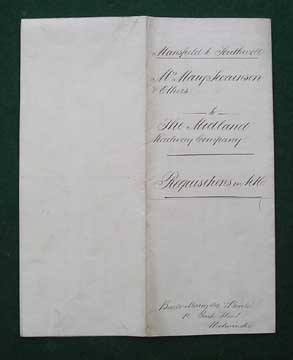 Mansfield to Southwell
Mrs Mary Swainson
& Others
to
The Midland
Railway Company
Requisitions on title
Great
Westminster